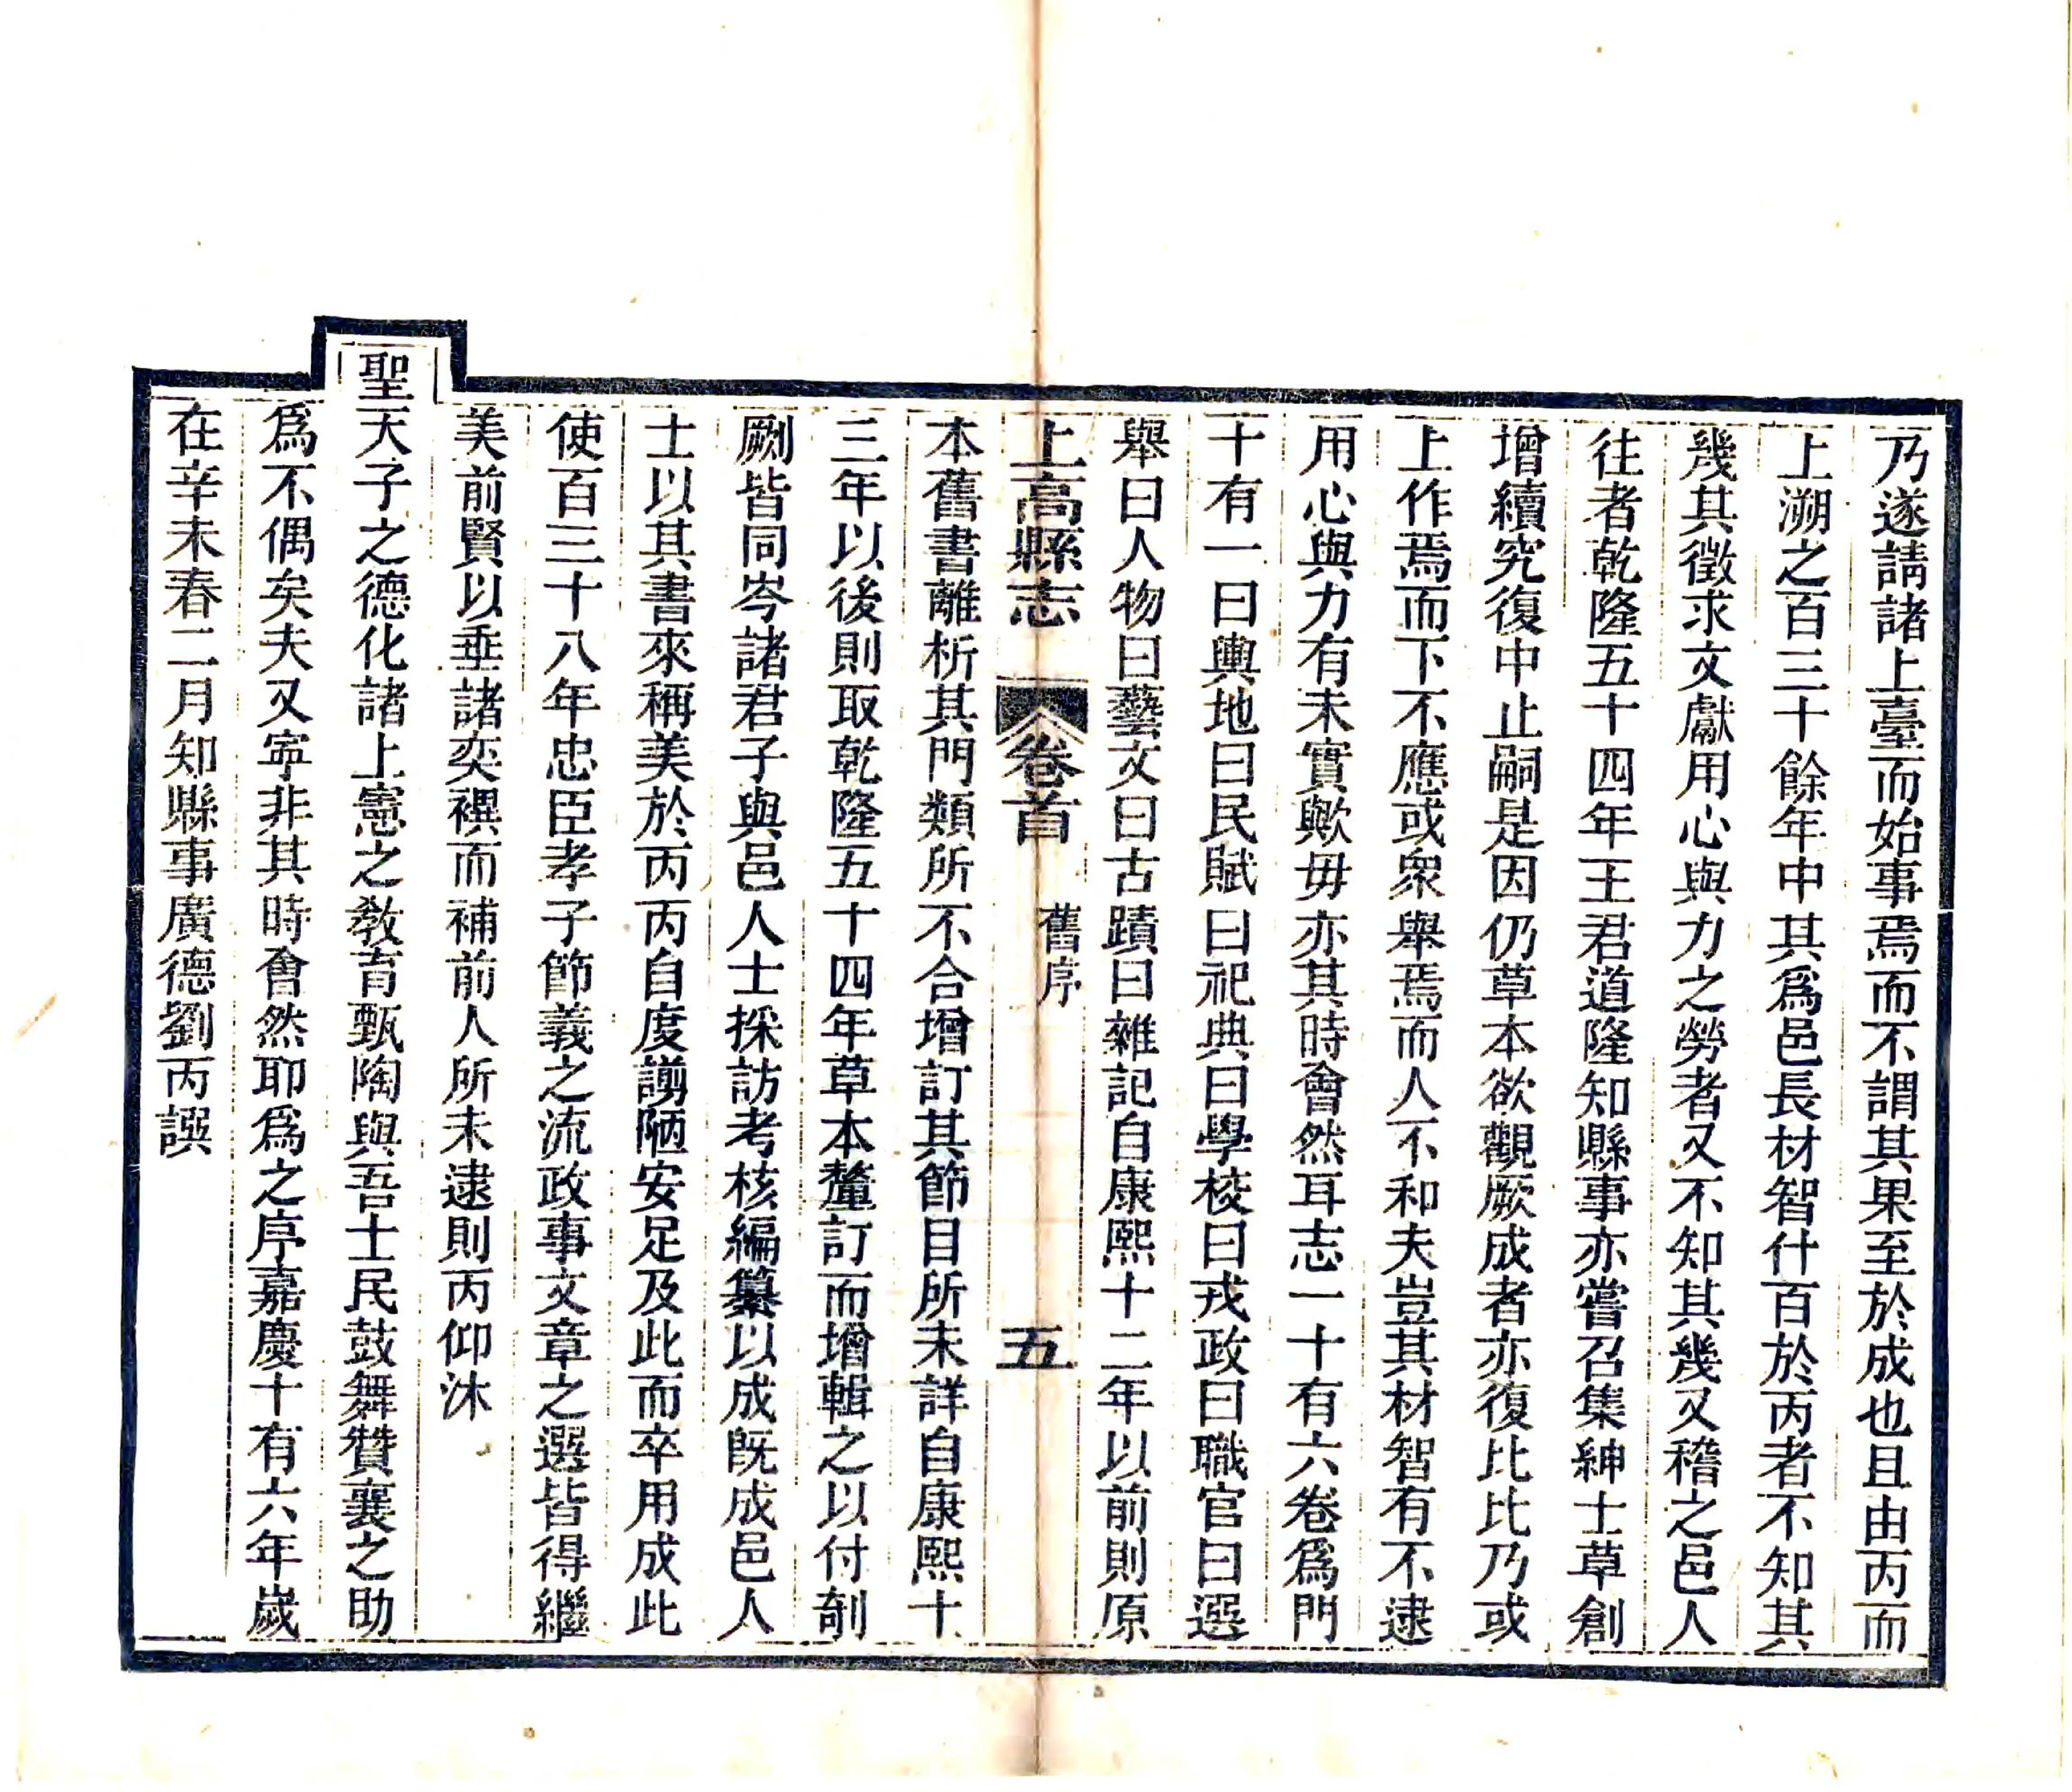 乃遂請諸上臺而始事焉而不謂其果至於成也且由丙而
上溯之百三十餘年中其爲邑長材智什百於丙者不知其
幾其徵求文獻用心與力之勞者又不知其幾又稽之邑人
往者乾隆五十四年王君道隆知縣事亦嘗召集紳士草創
增續究復中止嗣是因仍草本欲觀厥成者亦復比比乃或
上作焉而下不應或衆舉焉而人不和夫豈其材智有不逮
用心與力有未實歟毋亦其時會然耳志一十有六卷爲門
十有一曰輿地曰民賦曰祀典曰學校曰戎政曰職官曰選
舉曰人物曰藝文曰古蹟曰雜記自康熙十二年以前則原
上高縣志 卷首 舊序 五
本舊書離析其門類所不合增訂其節目所未詳自康熙十
三年以後則取乾隆五十四年草本釐訂而增輯之以付剞
劂皆同岑諸君子與邑人士採訪考核編纂以成既成邑人
士以其書來稱美於丙丙自度謭陋安足及此而卒用成此
使百三十八年忠臣孝子節義之流政事文章之選皆得繼
美前賢以垂諸奕禩而補前人所未逮則丙仰沐
聖天子之德化諸上憲之敎育甄陶與吾士民鼓舞贊襄之助
爲不偶矣夫又寧非其時會然耶爲之序嘉慶十有六年歲
在辛未春二月知縣事廣德劉丙譔